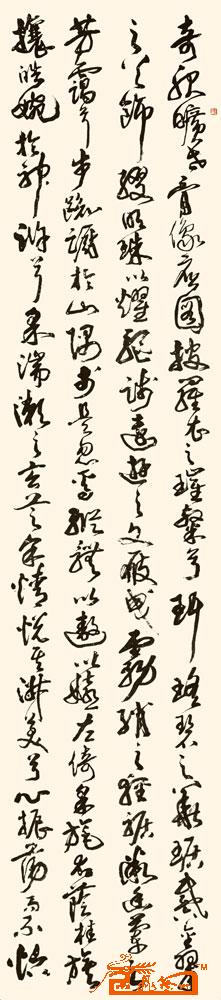 奇服曠世骨像應圖披羅衣之璀粲兮珥瑤碧之華琚戴金翠
之首飾綴明珠以耀軀踐遠遊之文履曳霧綃之輕裾微幽蘭之
芳藹兮步踟躕於山隅於是忽焉縱體以遨以嬉左倚采旄右蔭桂旗
攘皓腕於神滸兮采湍瀨之玄芝余情悅其淑美兮心振蕩而不怡